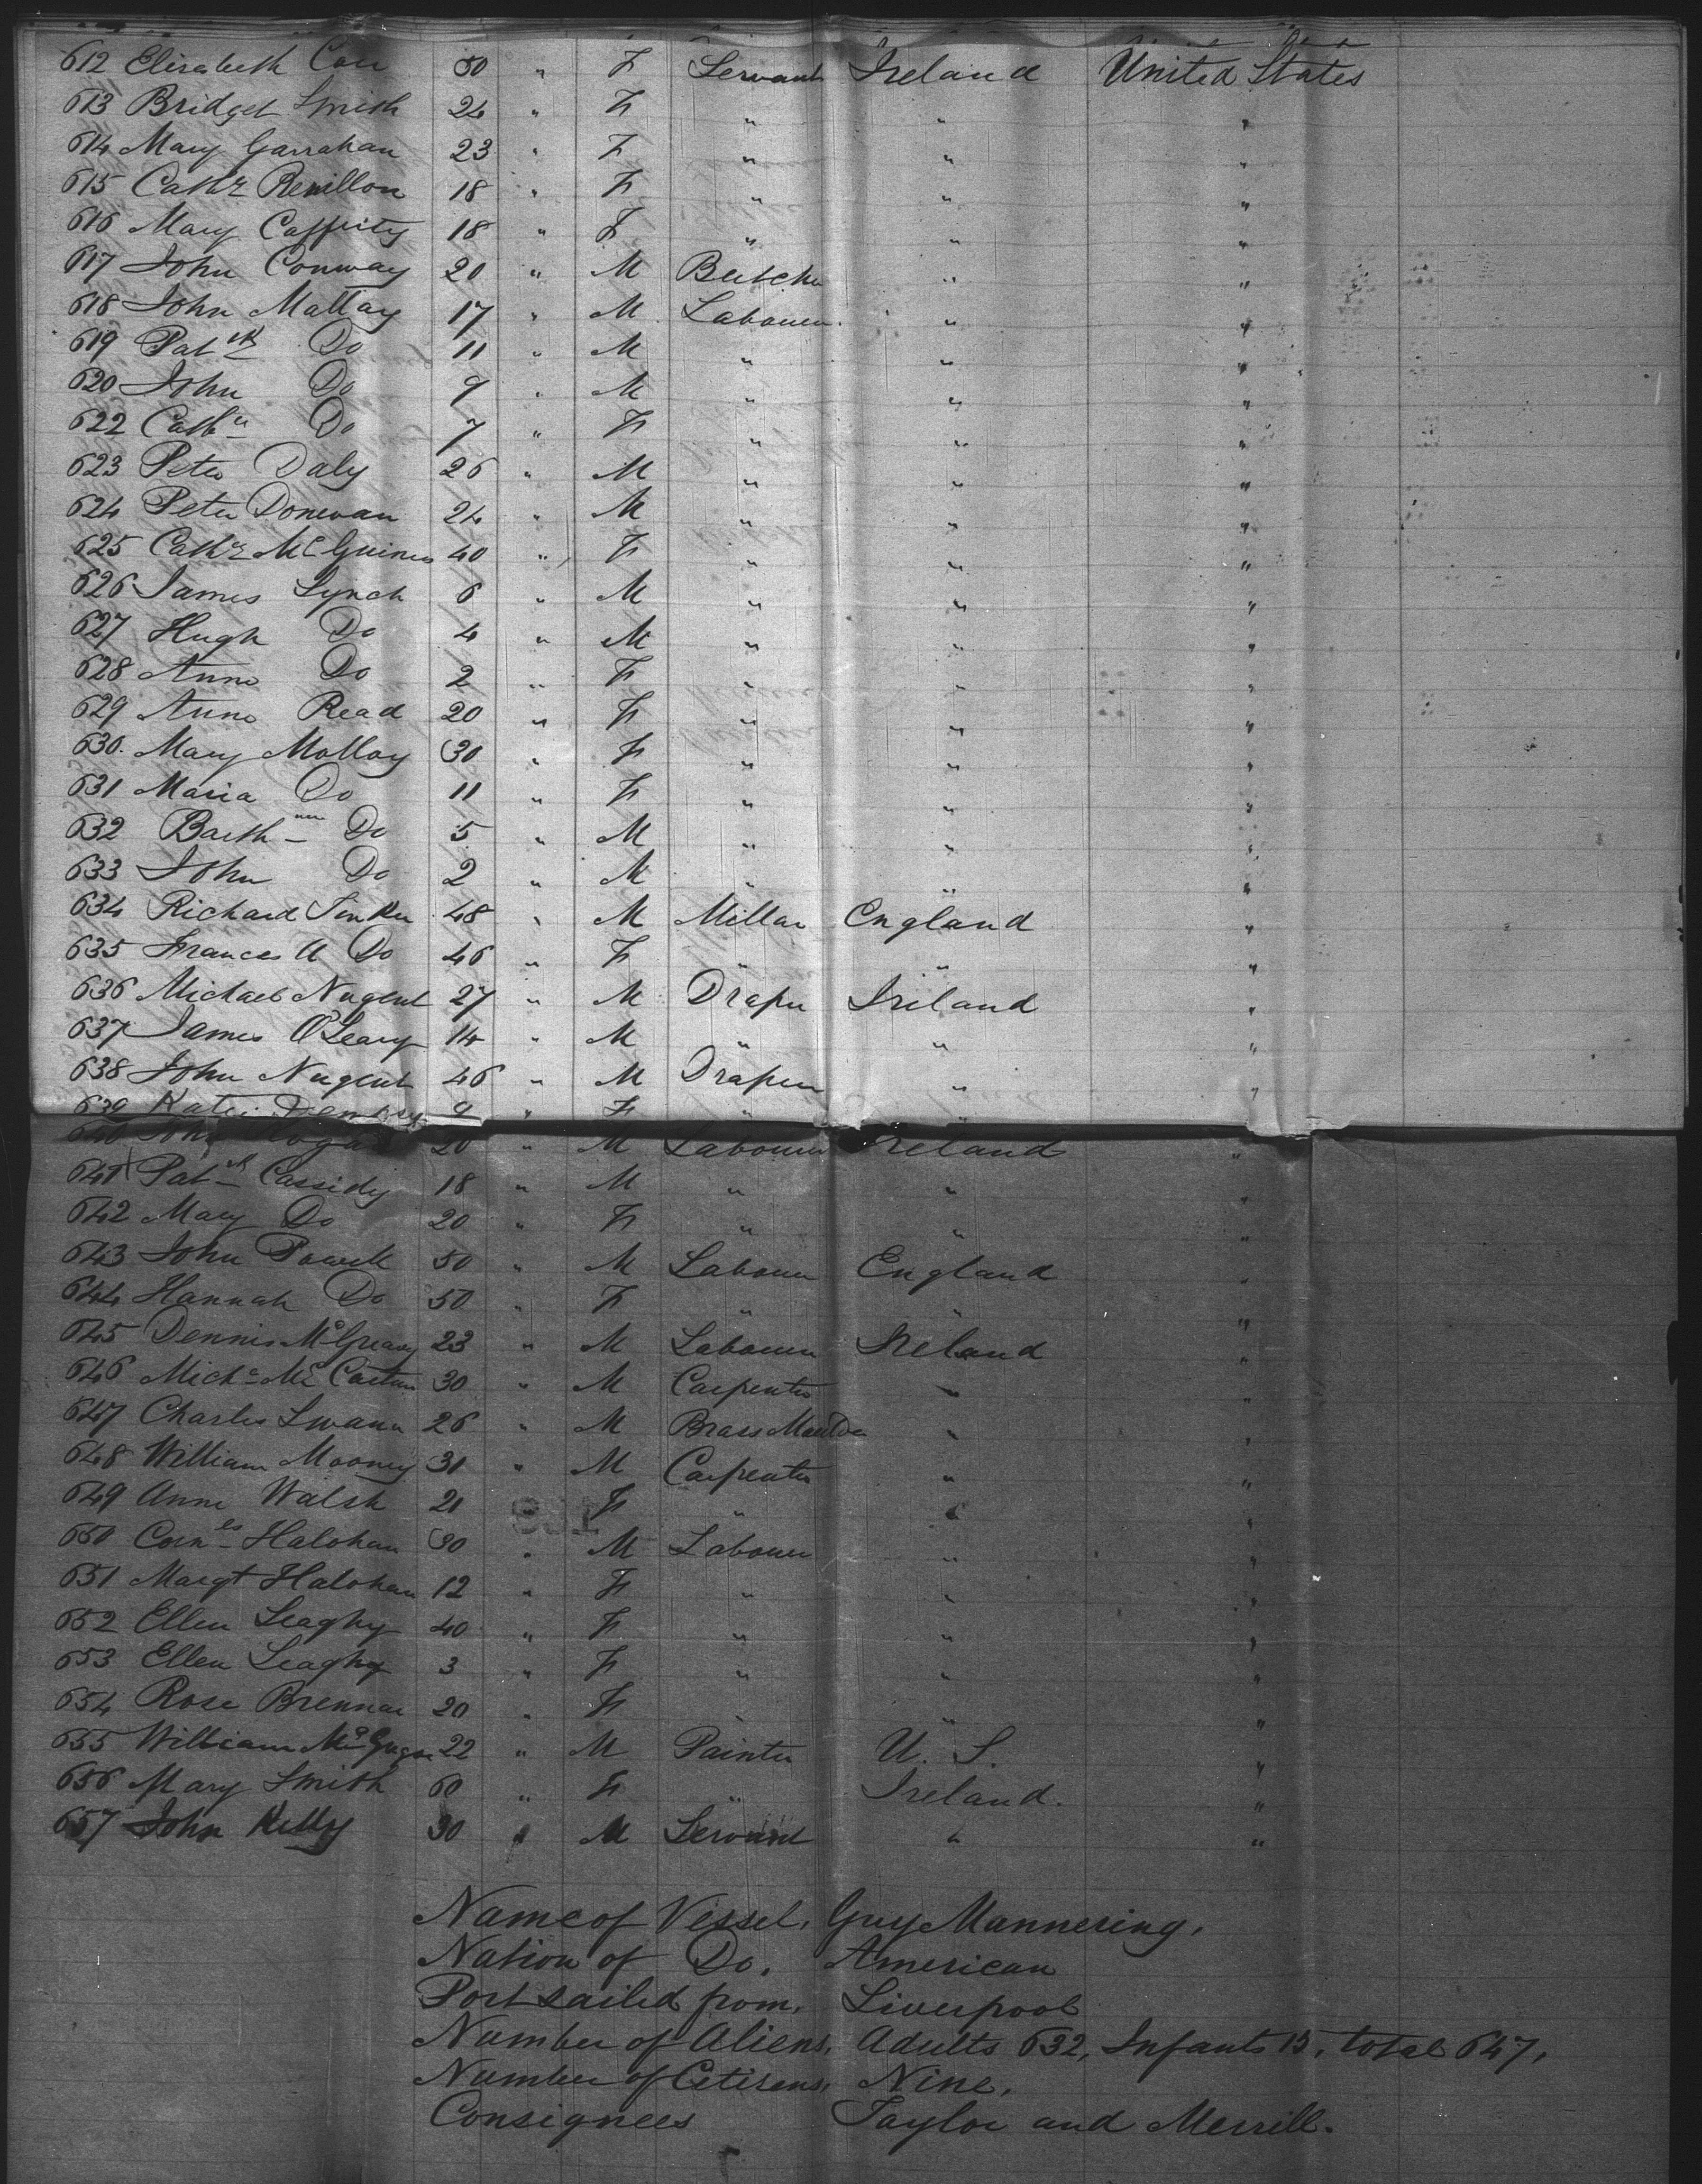 612 Elizabeth Carr 50 " F Servant Ireland United States
613 Bridget Smith 24 " F " " "
614 Mary Garrahan 23 " F " " "
615 Cathe 18 " F " " "
616 Mary Cafferty 18 " F " " "
617 John Conway 20 " M Butcher " "
618 John Malloy 17 " M Labourer " "
619 Patk Do 11 " M " " "
620 John Do 9 " M " " "
622 Cathe Do 7 " F " " "
623 Peter Daly 26 " M " " "
624 Peter Donevan 24 " M " " "
625 Cathe McGuiness 40 " F " " "
626 James Lynch 6 " M " " "
627 Hugh Do 4 " M " " "
628 Anne Do 2 " F " " "
629 Anne Read 20 " F " " "
630. Mary Molloy 30 " F " " "
631 Maria Do 11 " F " " "
632 Barthw Do 5 " M " " "
633 John Do 2 " M " " "
634 Richard Tinker 48 " M Millar England "
635 Frances A Do 46 " F " " "
636 Michael Nugent 27 " M Draper Ireland "
637 James O'Leary 14 " M " " "
638 John Nugent 46 " M Draper " "
639 Kate Dempsey 9 " F " "
640 John Hogan 20 " M Labourer Ireland "
641 Patk Cassidy 18 " M " " "
642 Mary Do 20 " F " " "
643 John Powell 50 " M Labourer England "
644 Hannah Do 50 " F " " "
645 Dennis McGreavy 23 " M Labourer Ireland "
646 Michl McCartan 30 " M Carpenter " "
647 Charles Swann 26 " M Brass Moulder " "
648 William Mooney 31 " M Carpenter " "
649 Anne Walsh 21 " F " " "
650 Cornls Halohan 30 " M Labourer " "
651 Margt Halohan 12 " F " " "
652 Ellen Leaghy 40 " F " " "
653 Ellen Leaghy 3 " F " " "
654 Rose Brennan 20 " F " " "
655 William 22 " M Painter U. S. "
656 Mary Smith 60 " F " Ireland. "
657 John Kelly 30 " M Servant " "
Name of Vessel, Guy Mannering,
Nation of Do. American
Port sailed from, Liverpool
Number of Aliens, Adults 632, Infants 15, total 647,
Number of Citizens, Nine,
Consignees Taylor and Merrill.